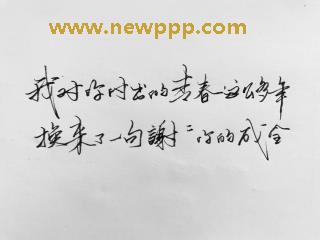 www.newppp.com
我对你付出的青春这么多年
换来了一句謝〻你的成全